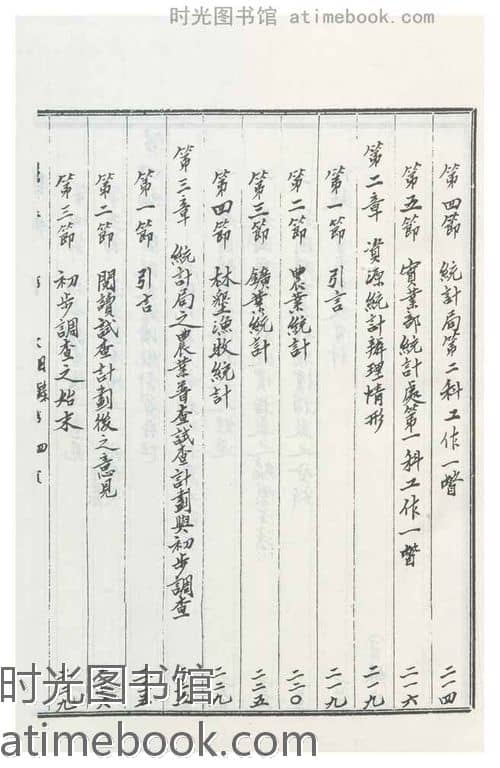 时光图书馆 atimebook.com
第四節 統計局第二科工作一瞥 二一四
第五節 實業部統計處第一科工作一瞥 二一六
第二章 資源統計辦理情形 二一九
第一節 引言 二一九
第二節 農業統計 二二〇
第三節 鑛業統計 二二五
第四節 林墾漁牧統計 二二九
第三章 統計局之農業普查試查計劃與初步調查
第一節 引言
第二節 閱讀試查計劃後之意見
第三節 初步調查之始末
时光图书馆
atimebook.com